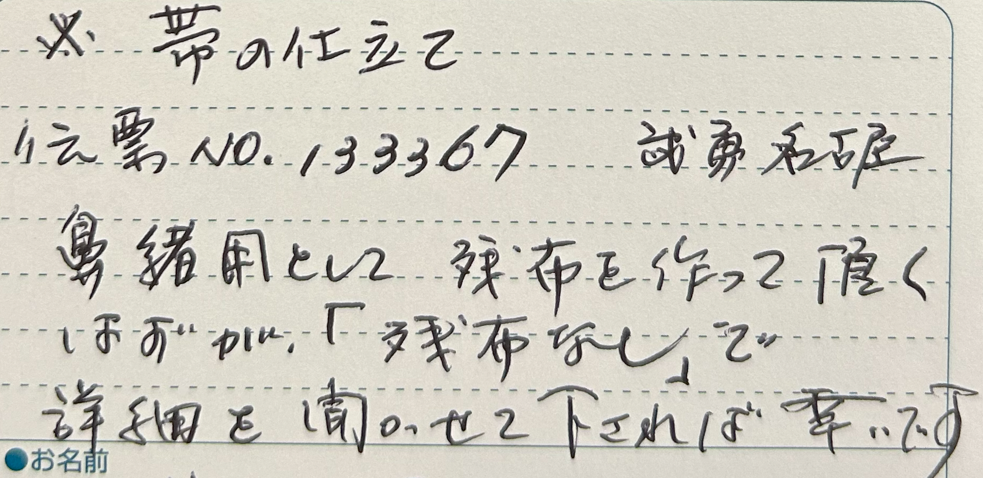 ※ 帯の仕立て
伝票NO.133367 誠勇名古屋
鼻緒用として 残布を作って頂く
はずが、「残布なし」で
詳細を聞かせて下されば幸いです
●お名前